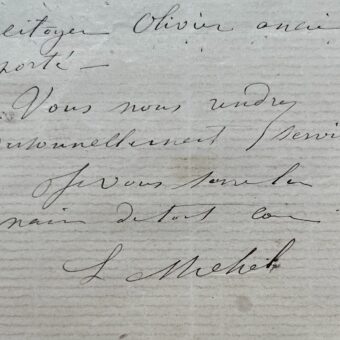 citoyen Olivier ancie
porté —
Vous nous rendrez
personnellement servi
Je vous serre la
main de tout coe
L Michel